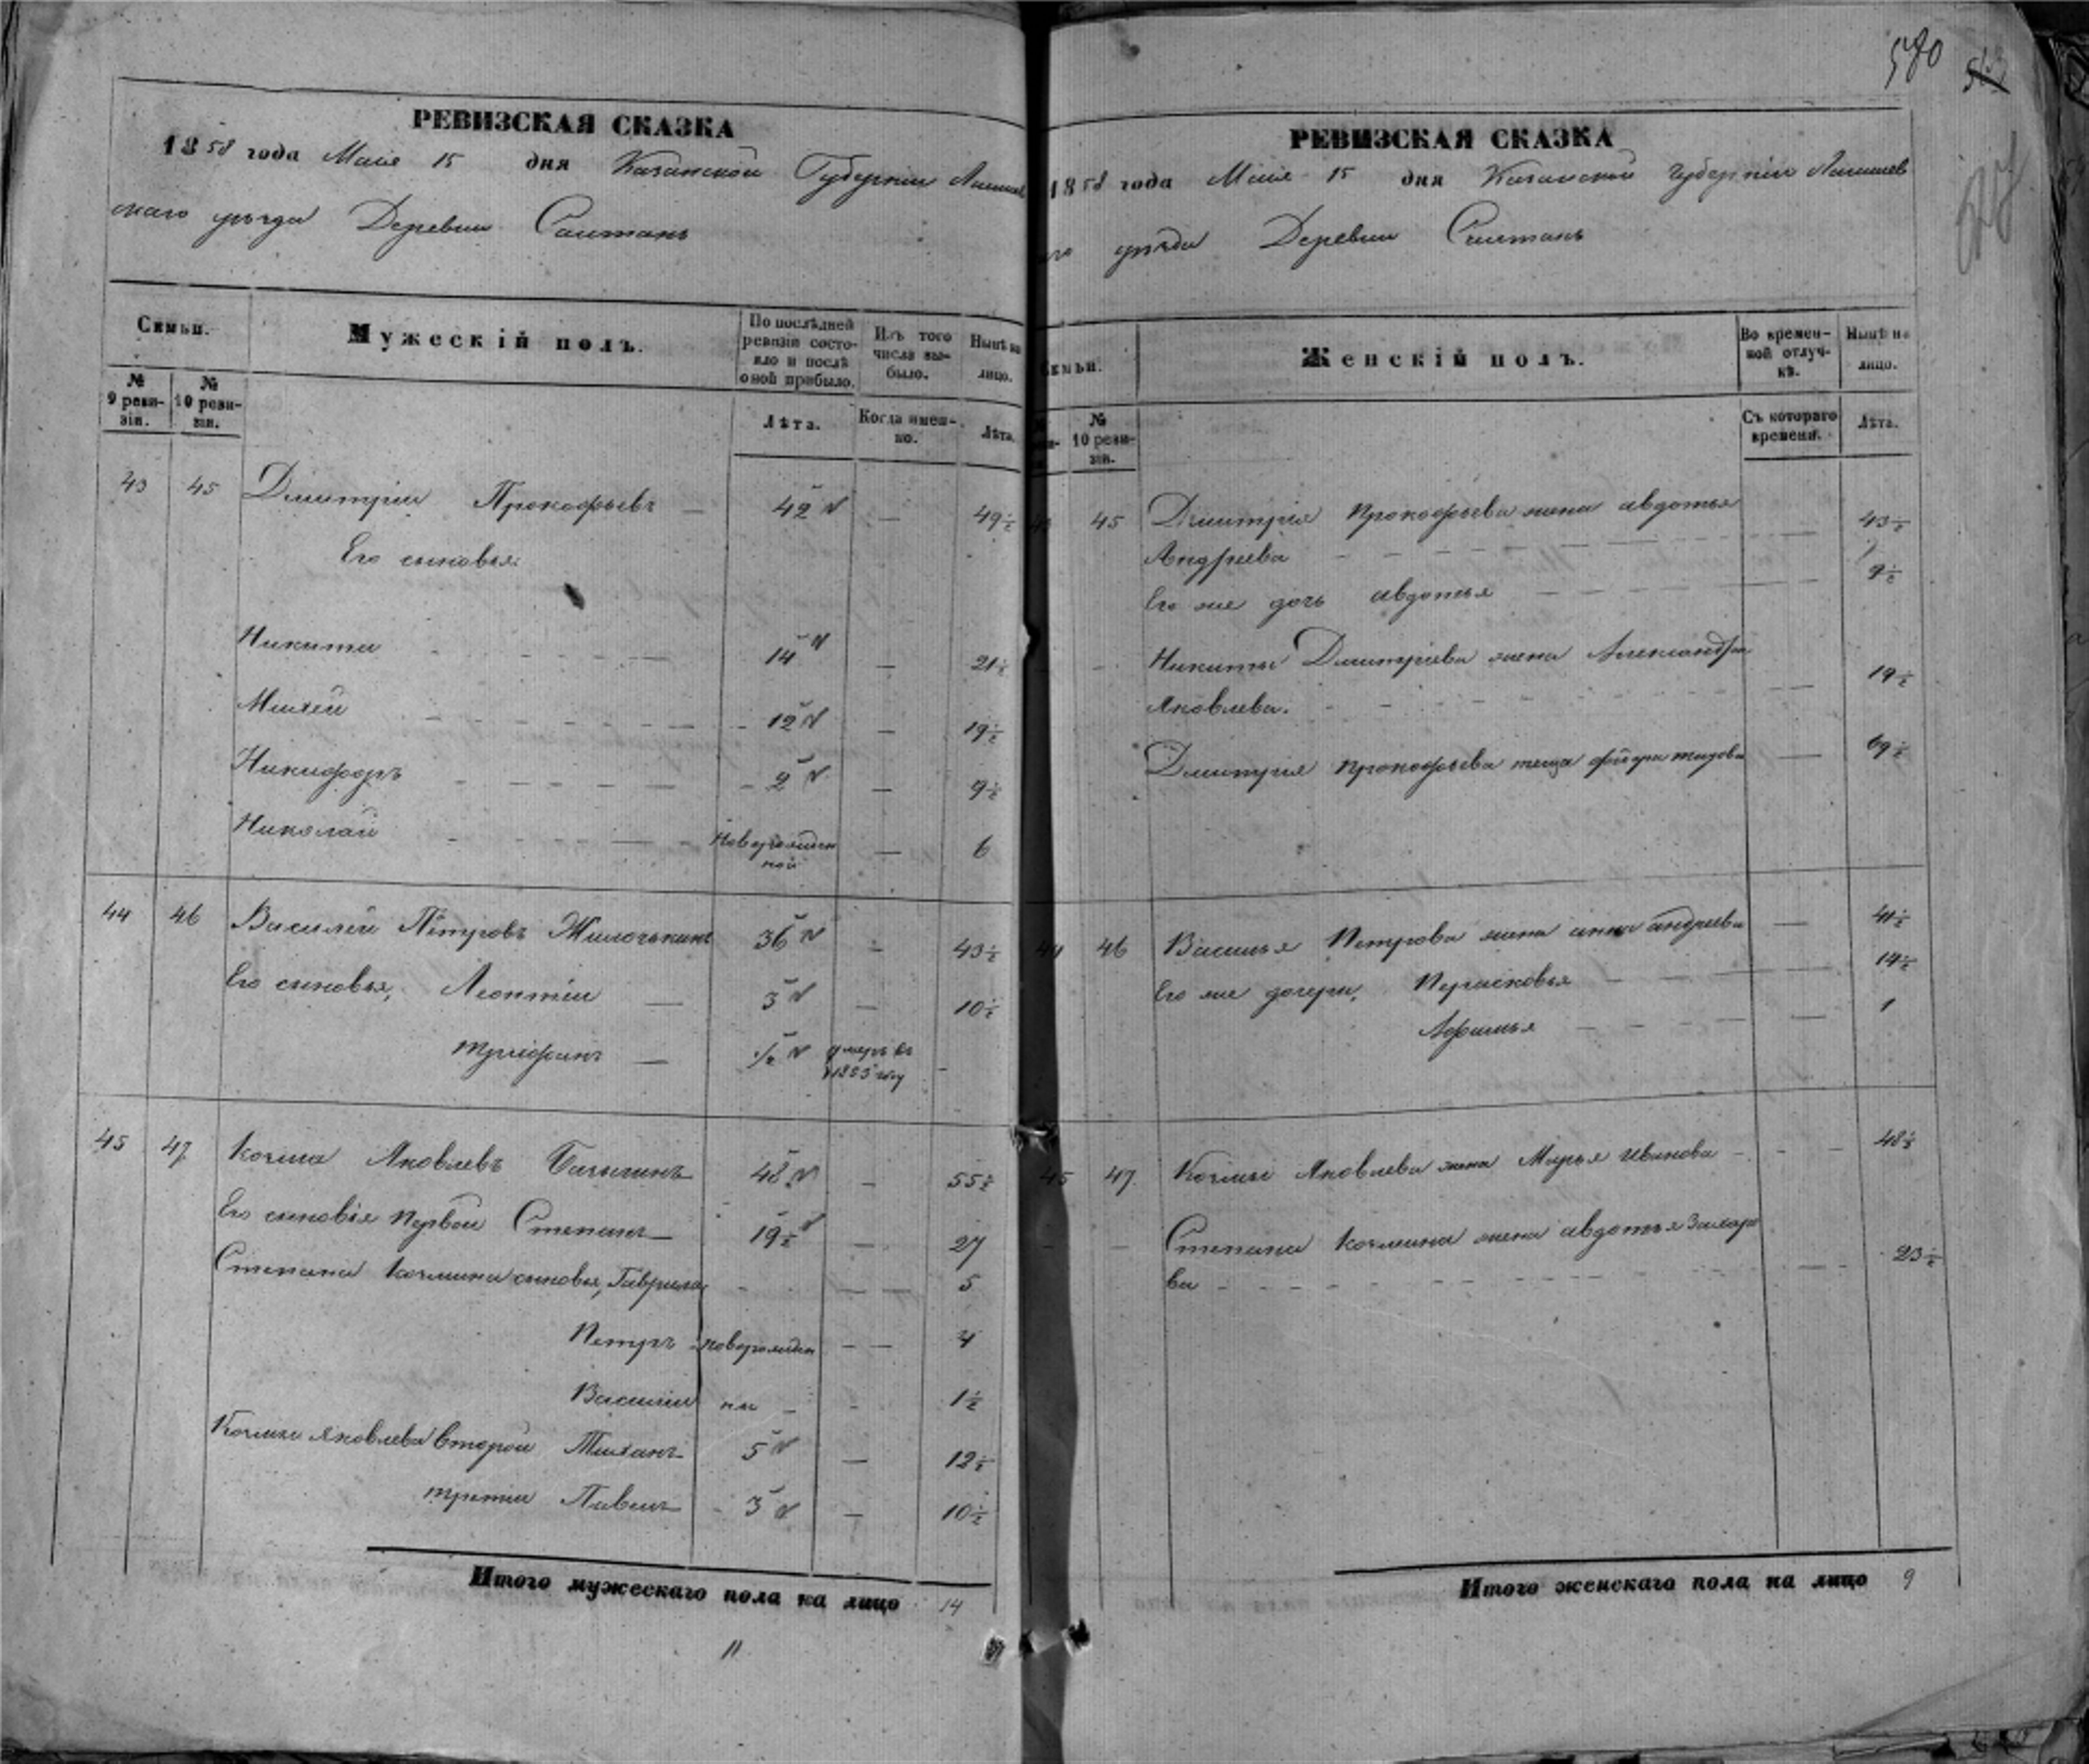 580
РЕВИЗСКАЯ СКАЗКА
1858 года Маiя 15 дня Казанской Губернiи Лаишев
скаго уѣзда Деревни Саитань
Семьи.
Мужескiй полъ.
По послѣдней ревизiи состояло и послѣ оной прибыло.
Изъ того числа выбыло.
Нынѣ на лицо.
№ 9 ревизiи.
№ 10 ревизiи.
Лѣта.
Когда именно.
Лѣта.
43 45 Дмитрiй Прокофьевъ — 42 — 49½
Его сыновья
Никита 14 — 21½
Михей 12 — 19½
Никифоръ 2 — 9½
Николай Новорожден
ной — 6
44 46 Василей Петровъ 36 — 43½
Его сыновья, Леонтiй — 3 — 10½
Трифонъ — ½ умеръ въ
1855 году -
45 47 Козма Яковлевъ 48 — 55½
Его сыновiя первой Степанъ 19½ — 27
Степана Козмина сыновья, Гаврила — 5
Петръ новорожден — 4
Василiй ны — 1½
Козмы Яковлева второй 5 — 12½
третiй Павелъ 3 — 10½
Итого мужескаго пола на лицо 14
РЕВИЗСКАЯ СКАЗКА
1858 года Маiя 15 дня Казанской Губернiи Лаишев
го уѣзда Деревни Саитань
Семьи.
Женскiй полъ.
Во временной отлучкѣ.
Нынѣ на лицо.
№ 10 ревизiи.
Съ котораго времени.
Лѣта.
45 Дмитрiя Прокофьева жена авдотья
Андрѣева 43½
Его же дочь авдотья 9½
Никиты Дмитрiева жена Александра
Яковлева. 19½
Дмитрiя Прокофьева теща 69½
44 46 Василья Петрова жена анна андрѣева — 41½
Его же дочери, Парасковья 14½
Афимья 1
45 47 Козмы Яковлева жена Марья Иванова 48½
Степана Козмина жена авдотья Захаро
ва 23½
Итого женскаго пола на лицо 9